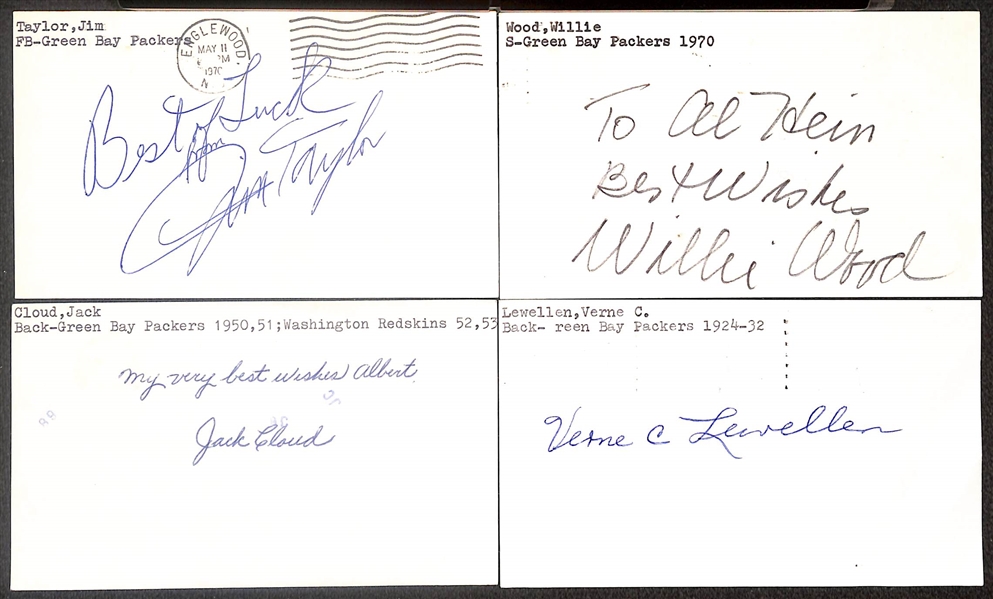 Taylor,Jim
FB-Green Bay Packers
ENGLEWOOD
MAY 11
PM
1970
N
Best of Luck
from
Jim Taylor
Wood,Willie
S-Green Bay Packers 1970
To Al Hein
Best Wishes
Willie Wood
Cloud,Jack
Back-Green Bay Packers 1950,51;Washington Redskins 52,53
My very best wishes Albert
Jack Cloud
Lewellen,Verne C.
Back- reen Bay Packers 1924-32
Verne C Lewellen